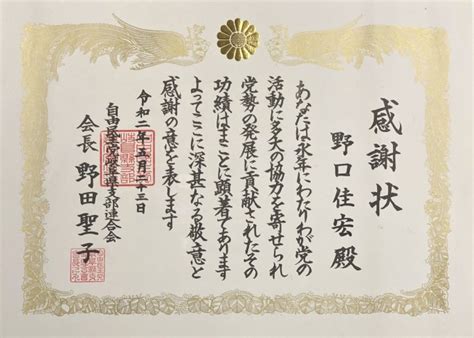 感謝状
野口住宏殿
あなたは永年にわたりわが党の
活動に多大の協力を寄せられ
党勢の発展に貢献されたその
功績はまことに顕著であります
よってここに深甚なる敬意と
感謝の意を表します
令和二年五月二十三日
自由民主党岐阜県支部連合会
会長 野田聖子